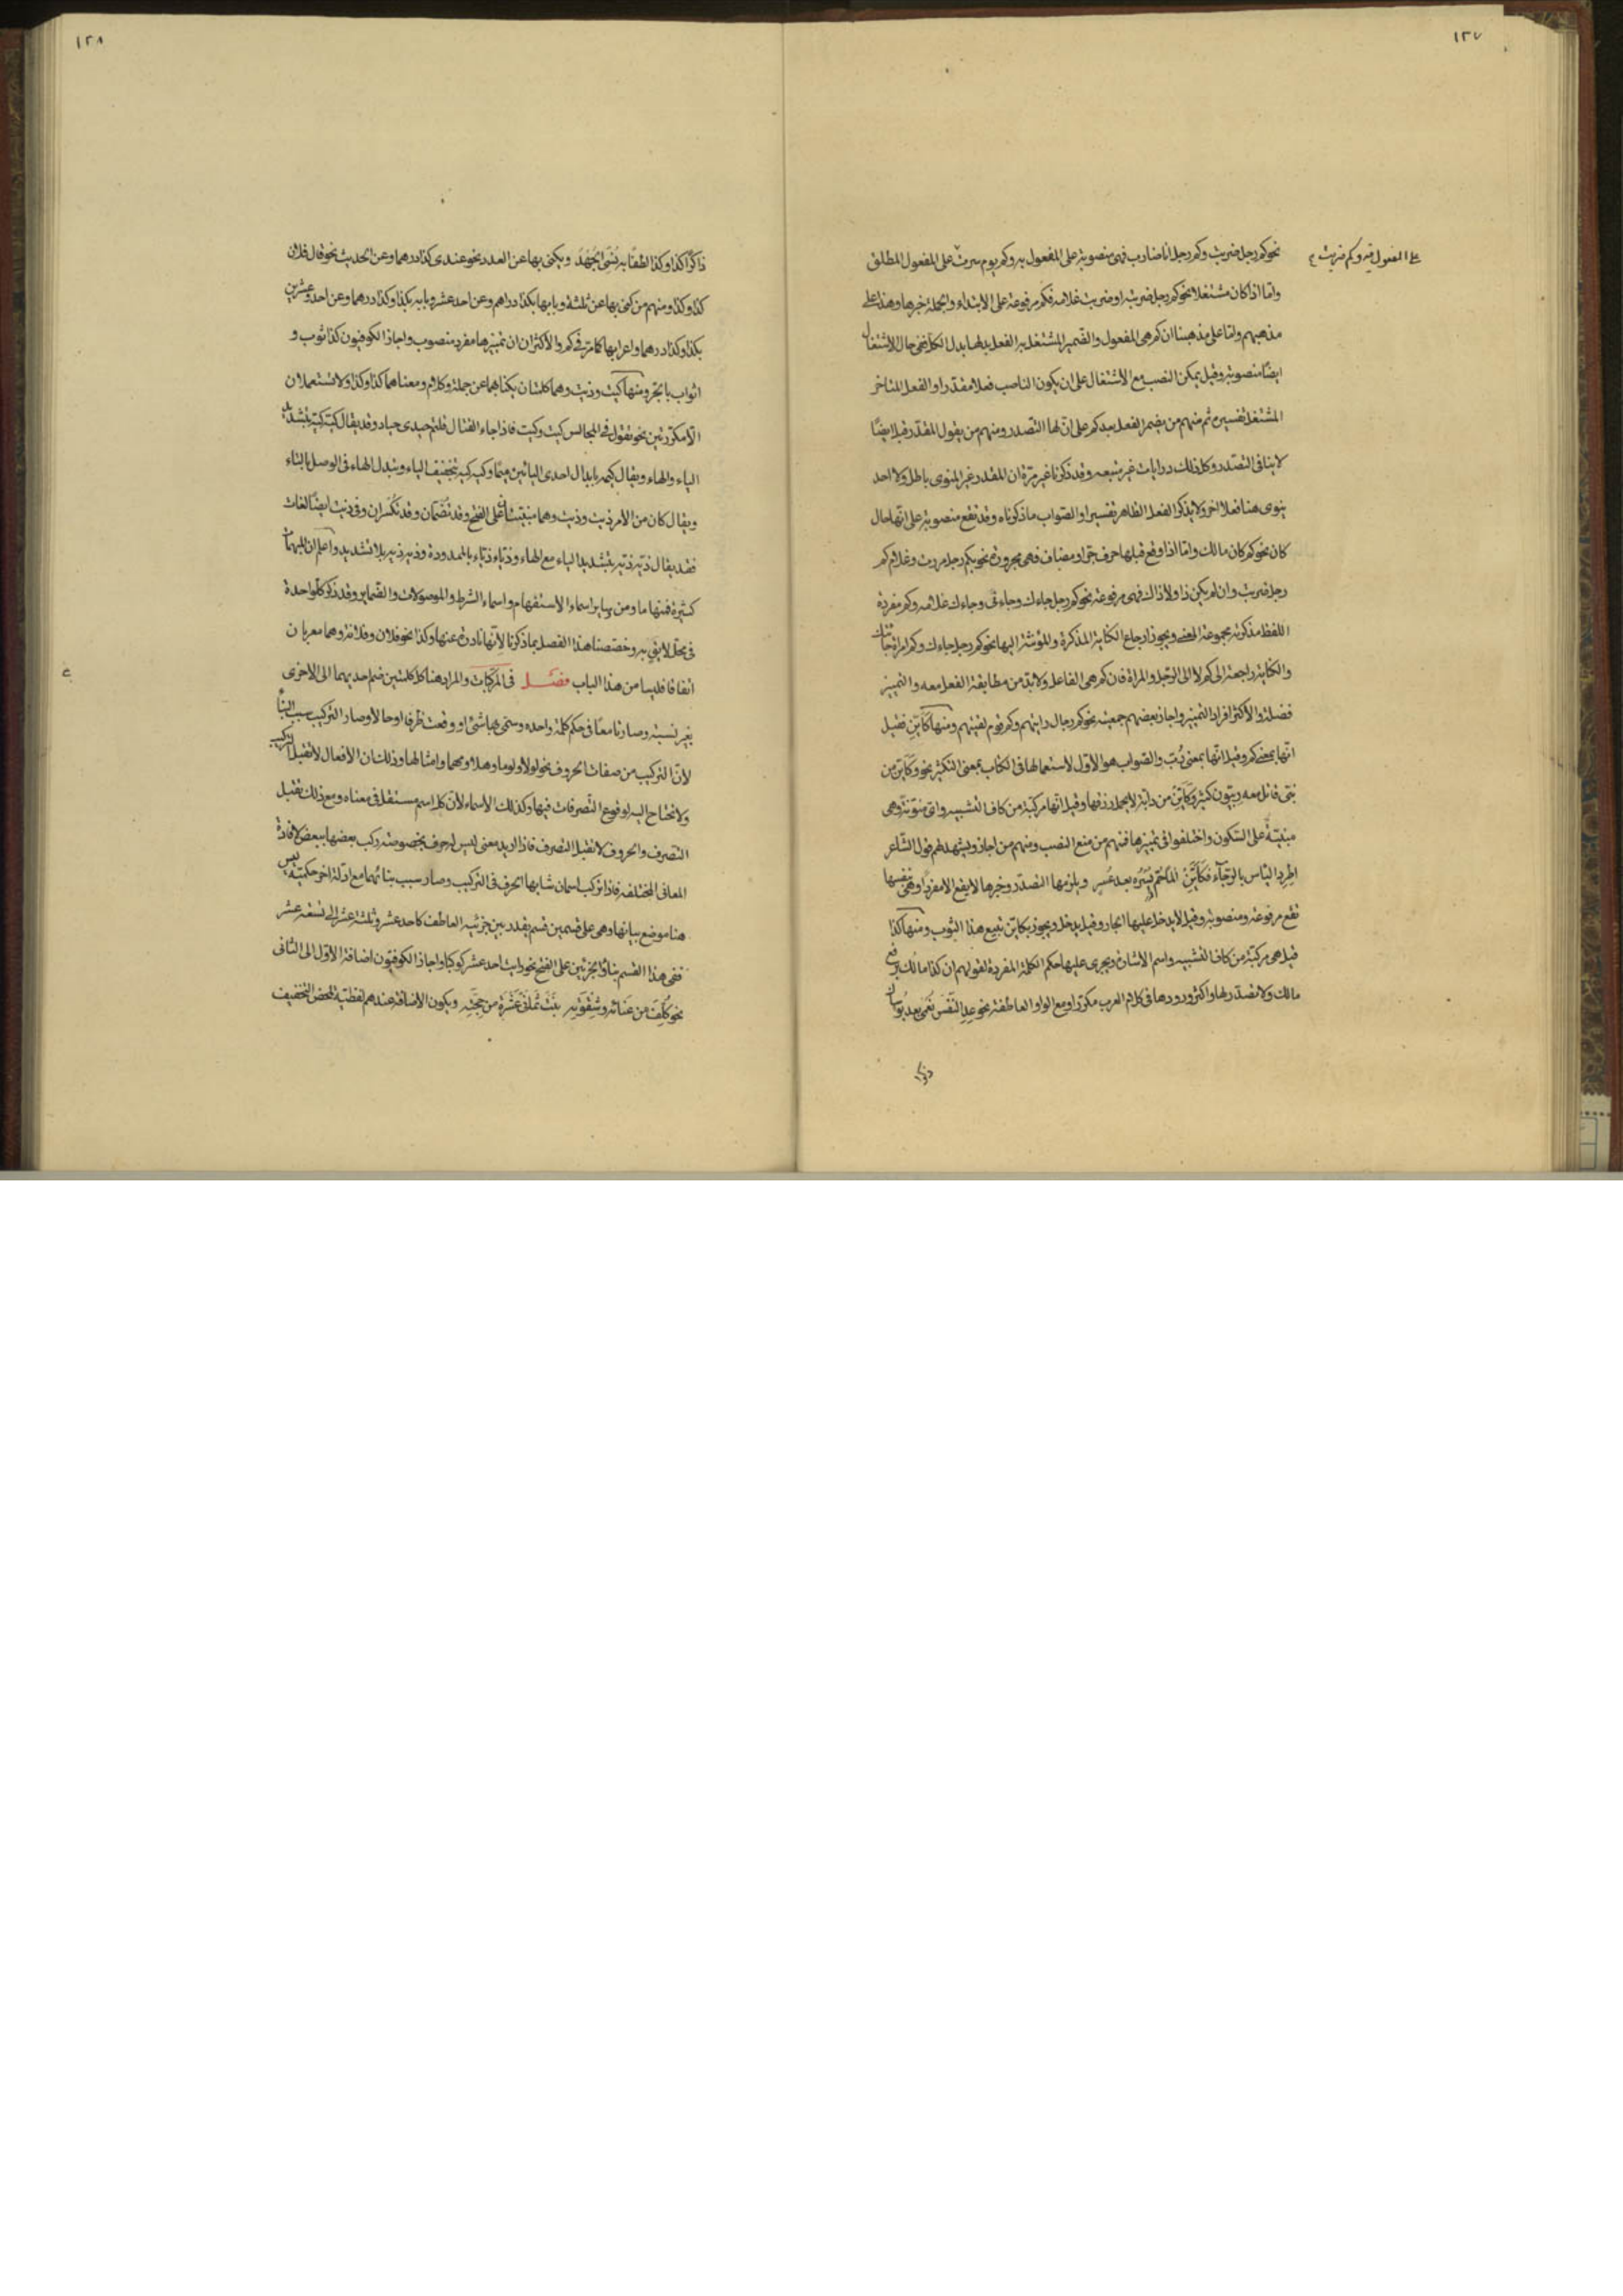 ١٢٧
نحو كم رجلا ضربت وكم رجلا انا ضارب فهى منصوبة على المفعول به وكم يوم سرت على المفعول المطلق
على المفعول فيه وكم ضربت
وامّا اذا كان مشتغلا نحو كم رجل ضربته او ضربت غلامه فكم مرفوعة على الابتداء والجملة خبرها وهذا على
مذهبهم وامّا على مذهبنا ان كم هى المفعول والضمير المشتغل به الفعل بدلها بدل الكل ففى حال الاشتغال
ايضًا منصوبة وقيل يمكن النصب مع الاشتغال على ان يكون الناصب فعلا مقدّرا والفعل المتاخر
المشتغل تفسيره ثم منهم من يضمر الفعل بعد كم على انّ لها التصدر ومنهم من يقول المقدّر قبلا ايضًا
لا ينافى التصدّر وكل ذلك روايات غير متبعه وقد ذكرنا غير مرّة ان المقدر غير المنوى باطل ولا احد
ينوى هنا فعلا اخر ولا يذكر الفعل الظاهر تفسيرا والصواب ما ذكرناه وقد تقع منصوبة على انّها حال
كان نحو كم كان مالك وامّا اذا وقع قبلها حرف جرّ او مضاف فهى مجرورة نحو بكم رجل مررت وغلام كم
رجل ضربت وان لم يكن ذا ولا ذاك فهى مرفوعة نحو كم رجل جاءك وجاءنى وجاءك غلامه وكم مفردة
اللفظ مذكرة مجموعة المعنى ويجوز ارجاع الكناية المذكرة والمؤنثة اليها نحو كم رجل جاءك وكم امراة جاءتك
والكناية راجعة الى كم لا الى الرّجل والمراة فان كم هى الفاعل ولا بدّ من مطابقة الفعل معه والتمييز
فضلة والاكثر افراد التمييز واجاز بعضهم جمعيته نحو كم رجال رايتهم وكم قوم لقيتهم ومنها كَاَيّن فقيل
انّها بمعنى كم وقيل انّها بمعنى رُبّ والصّواب هو الاوّل لاستعمالها فى الكتاب بمعنى التكثير نحو وكَاَيّن من
نبّى قاتل معه ربيّون كثير وكَاَيّنْ من دابّة لا يحمل رزقها وقيل انّها مركبّة من كاف التشبيه واىّ منوّنة وهى
مبنيّةٌ على السّكون واختلفوا فى تمييزها فمنهم من منع النصب ومنهم من اجاز ويشهد لهم قول الشّاعر
اطرد الياس بالرّجآء فكَاَيّنْ المًا حُمّ يُسْره بعد عُسرٍ ويلزمها التصدّر وخبرها لا يقع الا مفردًا وهى بنفسها
تقع مرفوعة ومنصوبة وقيل لا يدخل عليها الجار وقيل يدخل ويجوز بكاين تبيع هذا الثوب ومنها كذا
قيل هى مركبّة من كاف التشبيه واسم الاشارة ويجرى عليها حكم الكلمة المفردة لقولهم ان كذا مالك برفع
مالك ولا تصدّر لها واكثر ورودها فى كلام العرب مكررًا ومع الواو العاطفة نحو عِدِ النّفْسَ نُعْمى بعد بُؤساك
ذاكرا
١٢٨
ذاكرًا كذا وكذا لطفًا به نُسِىَ الجُهْدُ ويكنى بها عن العدد نحو عندى كذا درهما وعن الحديث نحو قال فلان
كذا وكذا ومنهم من كنى بها عن ثلثة وبابها بكذا دراهم وعن احد عشر وبابه بكذا وكذا درهما وعن احد وعشرين
بكذا وكذا درهما واعرابها كما مرّ فى كم والاكثران ان تمييزها مفرد منصوب واجاز الكوفيون كذا ثوب و
اثواب بالجّر ومنها كيت وذيت وهما كلمتان يكنا بهما عن جملة وكلام ومعناهما كذا وكذا ولا تستعملان
الّا مكرّرتين نحو تقول فى المجالس كيت وكيت فاذا جاء القتال قلتم حيدى حياد وقد يقال كيّة كيّة بتشديد
الياء والهاء ويقال كيه بابدال احدى اليائين وكيه كيه بتخفيف الياء وتبدل الهاء فى الوصل بالتاء
ويقال كان من الامر ذيت وذيت وهما مبنيّتان على الفتح وقد تُضَمّان وقد تُكسَران وفى ذيت ايضًا لغات
فقد يقال ذيّة ذيّة بتشديد الياء مع الهاء وذيّاء ذيّاء بالممدودة وذيه ذيه بلا تشديد واعلم ان المبهمات
كثيرة فمنها ما ومن وساير اسماء الاستفهام واسماء الشرط والموصولات والضماير وقد ذكر كلّ واحدة
فى محلّ لايق به وخصّصنا هذا الفصل بما ذكرنا لانّها نادرة عنها وكذا نحو فلان وفلانة وهما معربان
اتفاقا فليسا من هذا الباب فصل فى المركّبات والمراد هنا كل كلمتين ضم احديهما الى الاخرى
بغير نسبة وصارتا معًا فى حكم كلمة واحده وسمّى بهما شئ او وقعت ظرفا او حالا وصار التركيب سبب البناء
لانّ التركيب من صفات الحروف نحو لولا ولوما وهلا ومهما وامثالها وذلك ان الافعال لا تقبل التركيب
ولا تحتاج اليه لوقوع التّصرفات فيها وكذلك الاسماء لانّ كل اسم مستقل فى معناه ومع ذلك تقبل
التّصرف والحروف لا تقبل التصرف فاذا اريد معنى ليس له حرف بخصوصه ركب بعضها ببعض لافادة
المعانى المختلفه فاذا تركب اسمان شابها الحرف فى التركيب وصار سبب بنائهما مع ادلّة اخر حكميّة ليس
هنا موضع بيانها وهى على قسمين قسم يقدر بين جزئيه العاطف كاحد عشر وثلثة عشر الى تسعة عشر
ففى هذا القسم بناؤ الجزئين على الفتح نحو رايت احد عشر كوكبا واجاز الكوفيّون اضافة الاوّل الى الثانى
نحو كُلِّفَ من عَنَائه وشِقْوَتِهِ بِنْتَ ثَمانى عَشْرَةٍ من حِجَّتِهِ ويكون الاضافة عندهم لفظيّة لمحض التخفيف